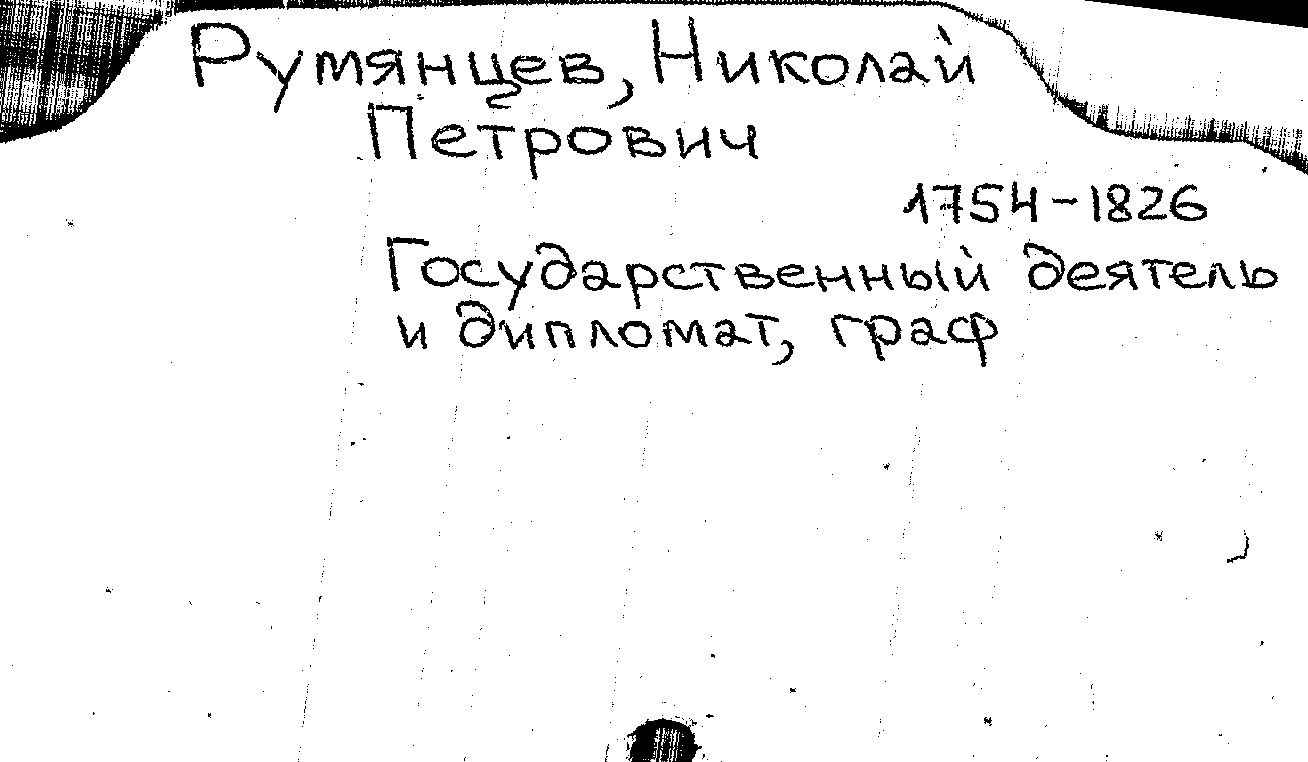 Румянцев, Николай
Петрович
1754-1826
Государственный деятель
и дипломат, граф